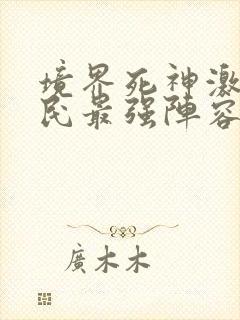 境界死神激
民最强陣容
廣木木